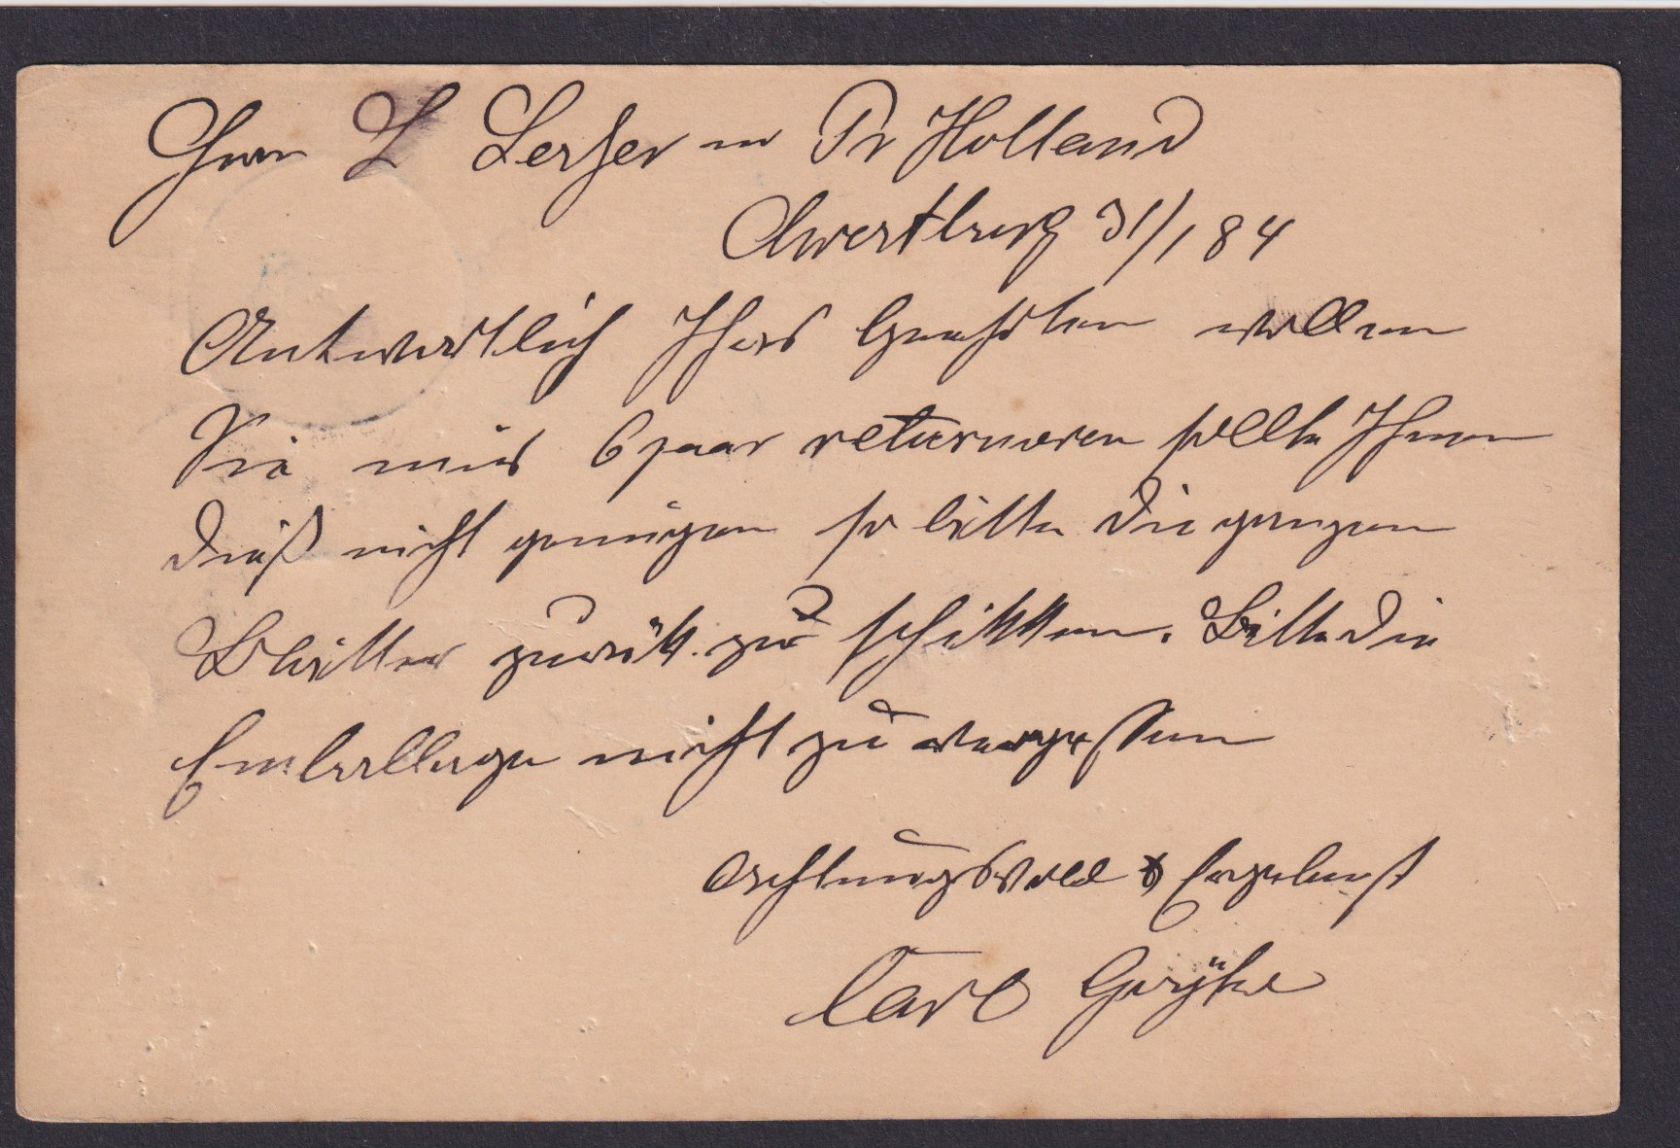 Herrn L Lerser in Pr Holland
31/1 84
Antwortlich Ihres Geehrten wollen
Sie mir 6 paar returniren sollte Ihnen
dieß nicht genügen so bitte die ganzen
zurükk zu schikken. Bitte die
Emballage nicht zu vergessen
Achtungsvoll & Ergebenst
Carl